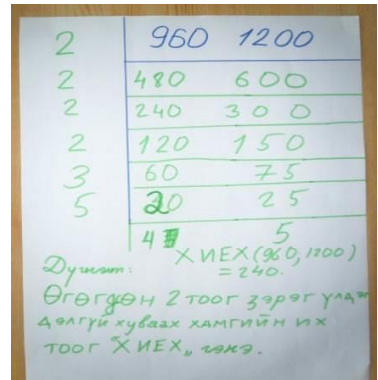 2 960 1200
2 480 600
2 240 300
2 120 150
3 60 75
5 20 25
4 5
ХИЕХ(960,1200)
Дүгнэлт: =240.
Өгөгдсөн 2 тоог зэрэг үлдэг
дэлгүй хуваах хамгийн их
тоог "ХИЕХ„ гэнэ.